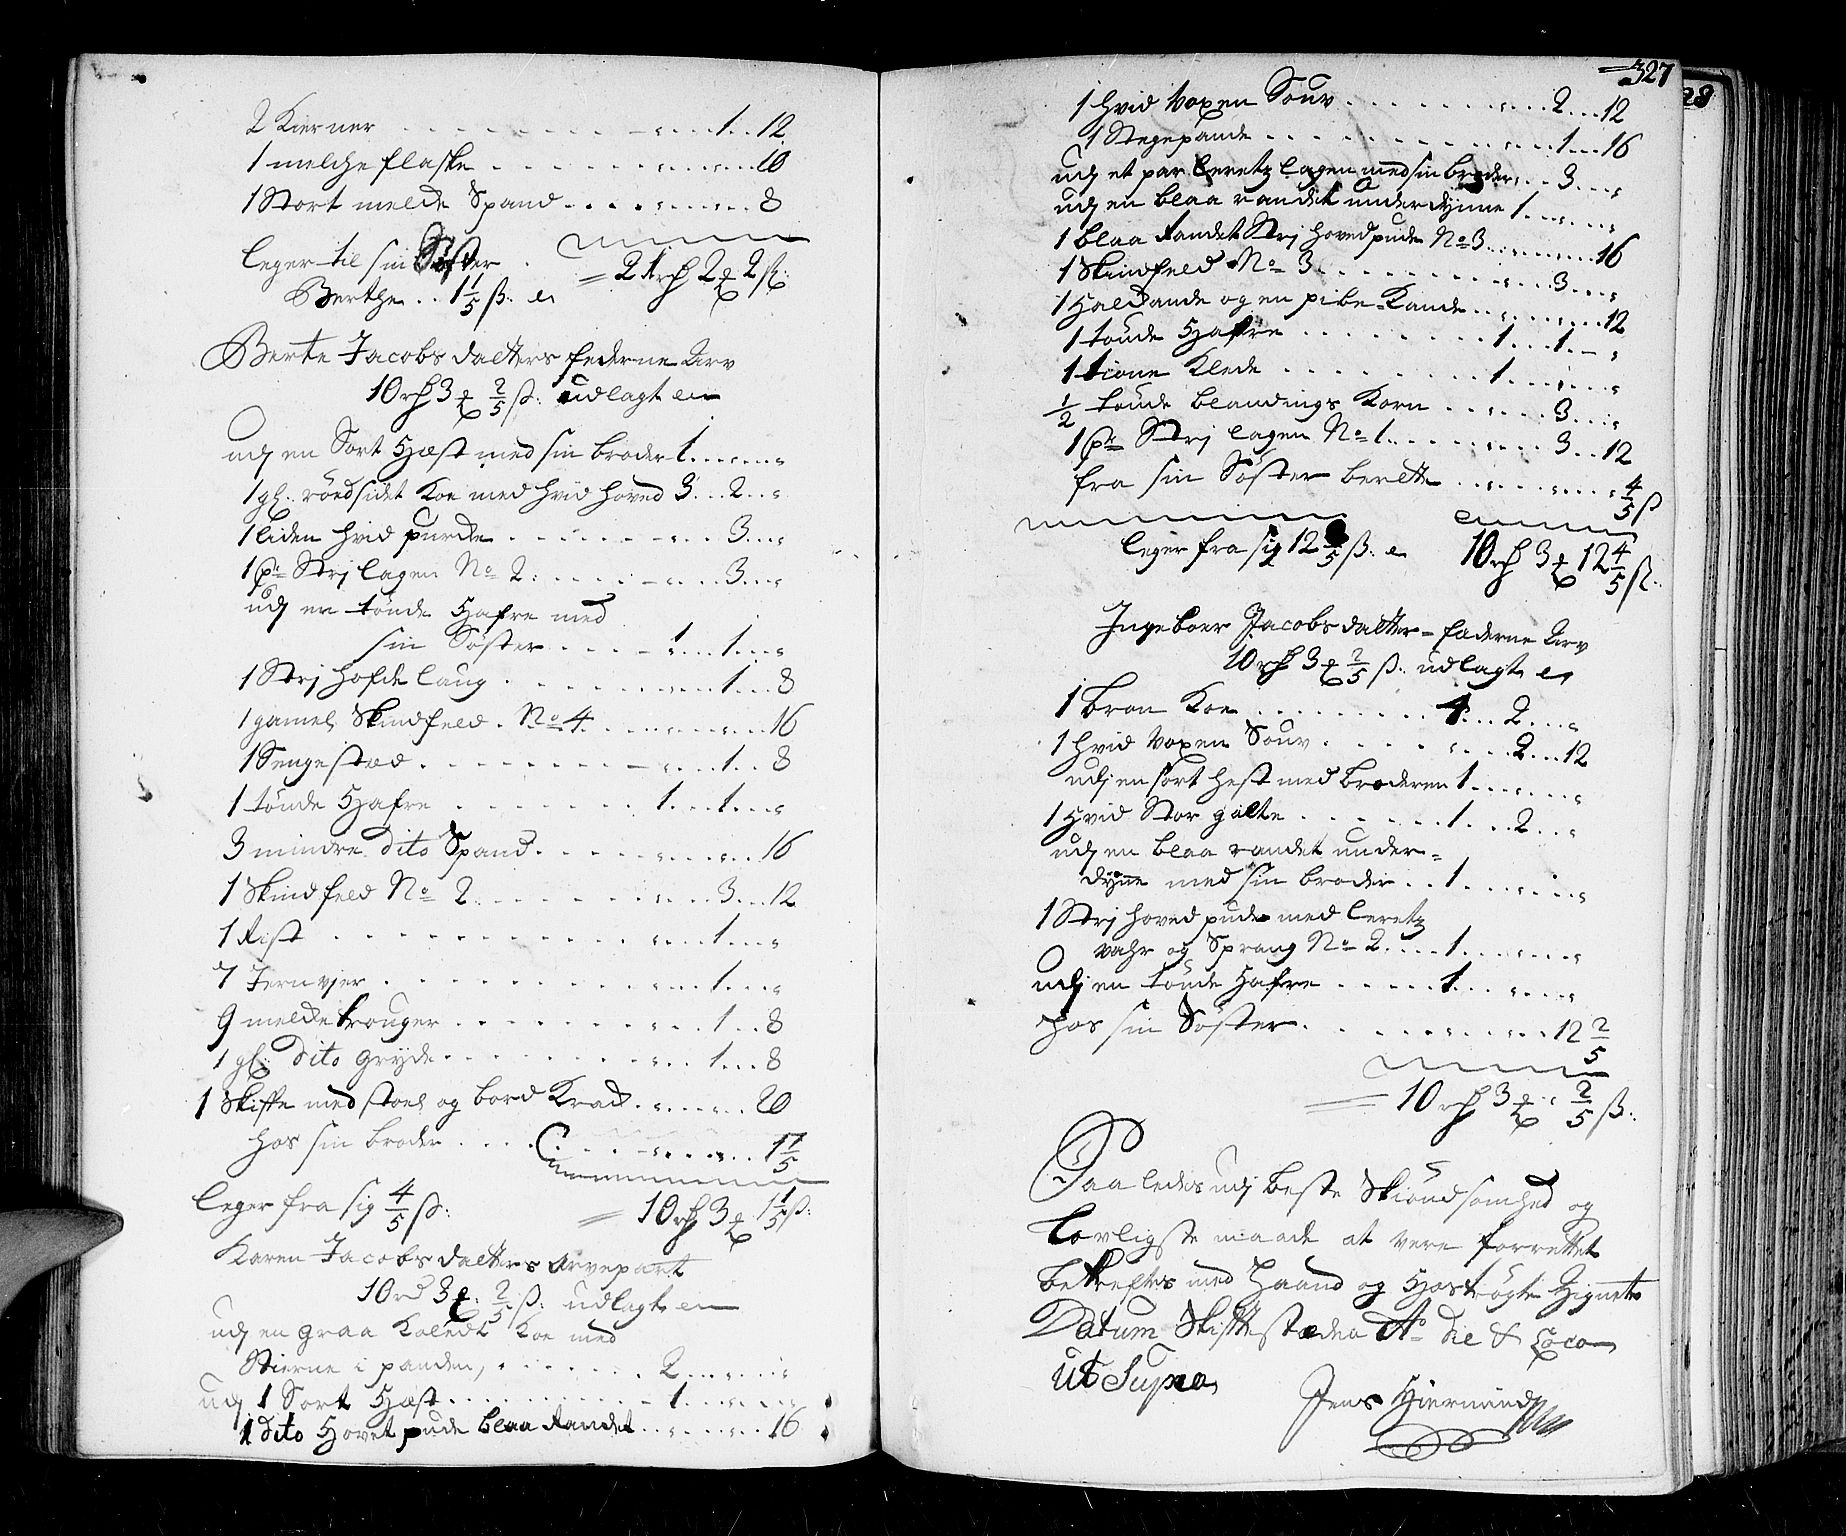 2 Kierner . . . 1 . . 12
1 melche flaske . . . 10
1 Stort melcke Spand . . . 8
leger til sin Søster = 21 rd 2 ₰ 2 ß:
Berthe . . 1 1/5 ß: er
Berte Jacobs datters federne Arv
10 rd 3 ₰ 2/5 ß: udlagt er
udj en Sort Hæst med sin broder 1 . . .
1 gl. rödsidet Koe med hvid hoved 3 . . 2 . .
1 liden hvid purcke . . . 3 . .
1 pr Strj lagen No 2 . . . 3 . .
udj en tönde Hafre med
sin Söster . . . 1 . . 1 . .
1 Strj hofde laug . . . 1 . . 8
1 gamel Skindfeld. No 4 . . . 16
1 Sengested . . . 1 . . 8
1 tönde Hafre . . . 1 . . 1 . .
3 mindre dito Spand . . . 16
1 Skindfeld No 2 . . . 3 . . 12
1 Rist . . . 1 . .
7 Jernvjer . . . 1 . .
9 melcke trouger . . . 1 . . 8
1 gl: dito gryde . . . 1 . . 8
1 Skiffe med stoel og bord Krack . . . 20
hos sin broder . . . 1 1/5
leger fra sig 4/5 ß: = 10 rd 3 ₰ 1 1/5 ß:
Karen Jacobs datters arvepart
10 rd 3 ₰. 2/5 ß: udlagt er
udj en graa Koledt Koe med
Stierne i panden, . . . 2 . . .
udj 1 Sort Hæst . . . 1 . . .
1 dito Hovet pude blaa Randet . . . 16
327
28
1 hvid voxen Souv . . . 2 . . 12
1 Stegepande . . . 1 . . 16
udj et par leretz lagen med sin broder . . 3 . .
udj en blaa randet underdynne 1 . . .
1 blaa Randet Strj hovedpude No 3 . . . 16
1 Skindfeld No 3 . . . 3 . .
1 Halkande og en pibe-Kande . . . 12
1 tönde Hafre . . . 1 . . 1 . .
1 Kiove Klede . . . 1 . . .
1/2 tönde blandings Korn . . . 3 . .
1 pr Strj lagen No 1 . . . 3 . . 12
fra sin Söster berette . . . 4/5 ß
leger fra sig 12 2/5 ß: er 10 rd 3 ₰ 12 4/5 ß:
Ingeboer Jacobs datter = faderne Arv
10 rd 3 ₰ 2/5 ß: udlagt er
1 bron Koe . . . 4 . . 2 . .
1 hvid voxen Souv . . . 2 . . 12
udj en sort hest med broderen 1 . . .
1 Hvid Stor galte . . . 1 . . 2 . .
udj en blaa randet under=
dynne med sin broder . . 1 . . .
1 Strj hoved pude med leretz
vahr og Sprang No 2 . . . 1 . . .
udj en tönde Hafre . . . 1 . . .
hos sin Söster . . . 12 2/5
= 10 rd 3 ₰ " 2/5 ß:
Saaledes udj beste Skiöndsomhed og
lovligste maade at vere forrettet
bekreftes med Haand og Hoströgte Zignete
Datum Skiftestæden Ao die & Loco
ut Supra
Jens Hiermind